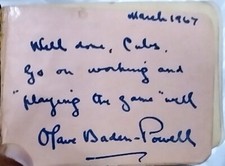 March 1967
Well done, Cubs.
Go on working and
"playing the game" well
Olave Baden-Powell